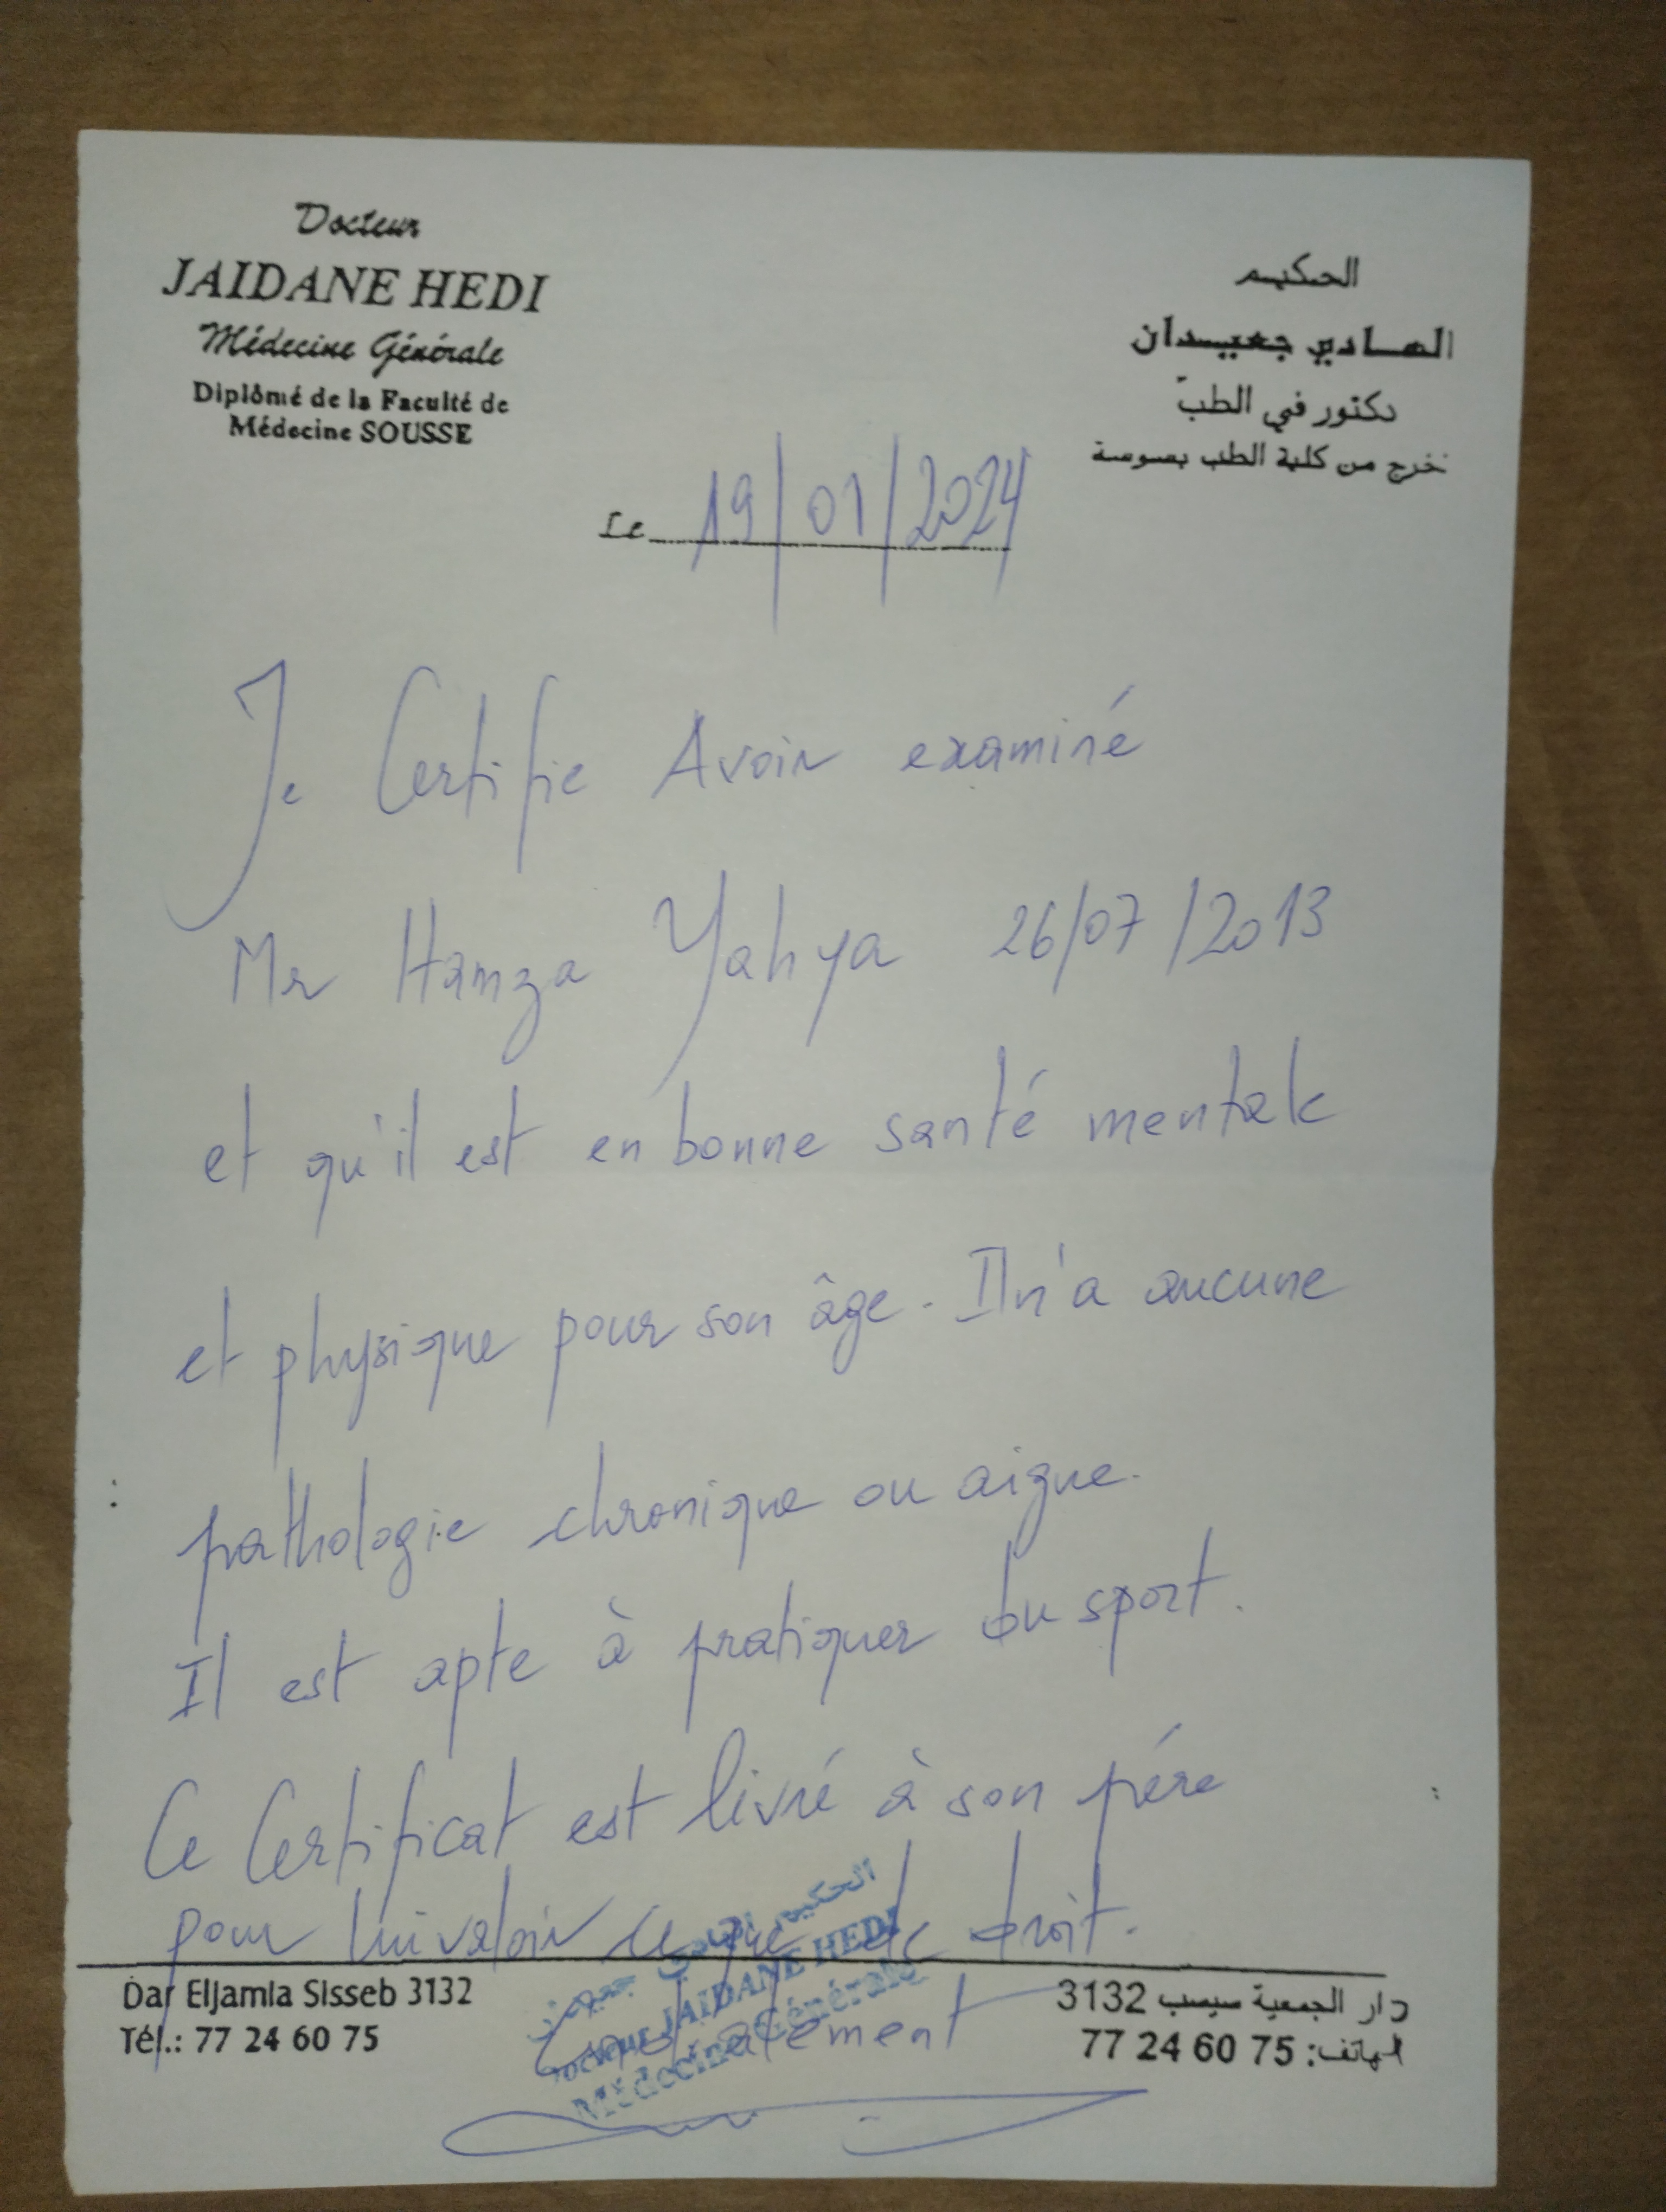 Docteur
JAIDANE HEDI
Médecine Générale
Diplômé de la Faculté de
Médecine SOUSSE
الحكيم
الهادي جعيدان
دكتور في الطبّ
تخرج من كلية الطب بسوسة
Le 19/01/2024
Je Certifie Avoir examiné
Mr Hamza Yahya 26/07/2013
et qu'il est en bonne santé mentale
et physique pour son âge. Il n'a aucune
pathologie chronique ou aigue.
Il est apte à pratiquer du sport.
Ce Certificat est livré à son pére
pour lui valoir ce que de droit.
الحكيم الهادي جعيدان
Docteur JAIDANE HEDI
Médecine Générale
Dar ElJamla Sisseb 3132
Tél.: 77 24 60 75
دار الجمعية سيسب 3132
الهاتف: 75 60 24 77